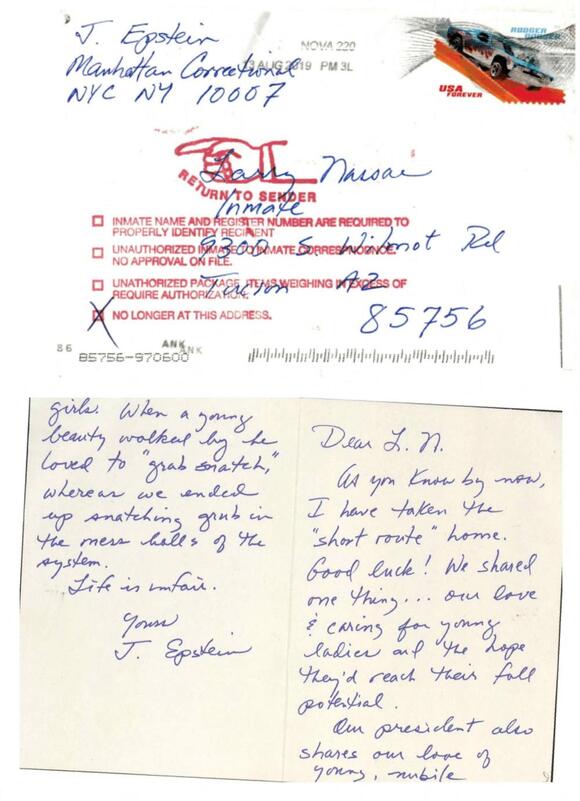 J. Epstein
Manhattan Correctional
NYC NY 10007
NOVA 220
13 AUG 2019 PM 3L
RODGER DODGER
USA
FOREVER
RETURN TO SENDER
Larry Nassar
Inmate
9300 S. Wilmot Rd
Tucson AZ
85756
INMATE NAME AND REGISTER NUMBER ARE REQUIRED TO
PROPERLY IDENTIFY RECIPIENT
UNAUTHORIZED INMATE TO INMATE CORRESPONDENCE.
NO APPROVAL ON FILE.
UNATHORIZED PACKAGE ITEMS WEIGHING IN EXCESS OF
REQUIRE AUTHORIZATION.
X NO LONGER AT THIS ADDRESS.
86
ANK
ANK
85756-970600
Dear L. N.
As you know by now,
I have taken the
"short route" home.
Good luck! We shared
one thing... our love
& caring for young
ladies and the hope
they'd reach their full
potential.
Our president also
shares our love of
young, nubile
girls. When a young
beauty walked by he
loved to "grab snatch,"
whereas we ended
up snatching grub in
the mess halls of the
system.
Life is unfair.
Yours
J. Epstein